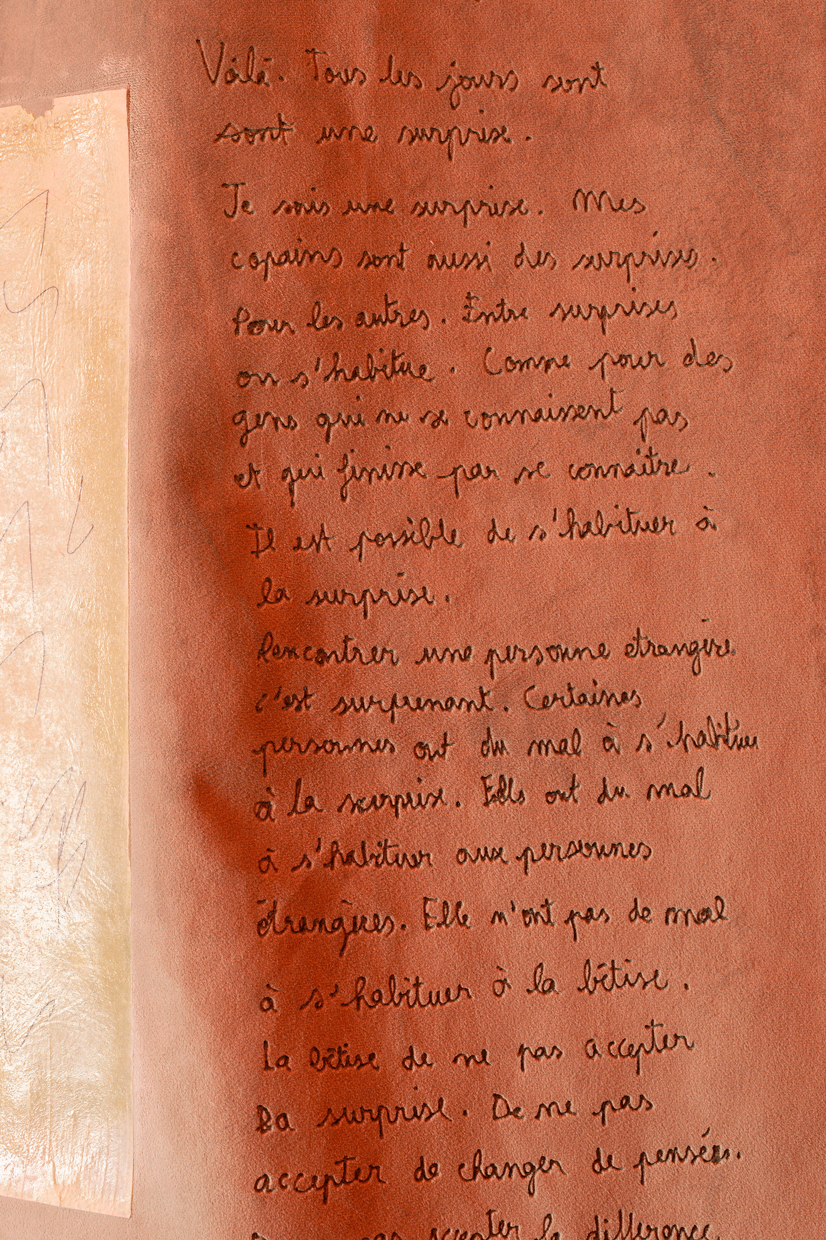 Voilà. Tous les jours sont
sont une surprise.
Je suis une surprise. Mes
copains sont aussi des surprises.
Pour les autres. Entre surprises
on s'habitue. Comme pour des
gens qui ne se connaissent pas
et qui finisse par se connaître.
Il est possible de s'habituer à
la surprise.
Rencontrer une personne étrangère
c'est surprenant. Certaines
personnes ont du mal à s'habituer
à la surprise. Elles ont du mal
à s'habituer aux personnes
étrangères. Elle n'ont pas de mal
à s'habituer à la bêtise.
La bêtise de ne pas accepter
La surprise. De ne pas
accepter de changer de pensées.
pas accepter la différence